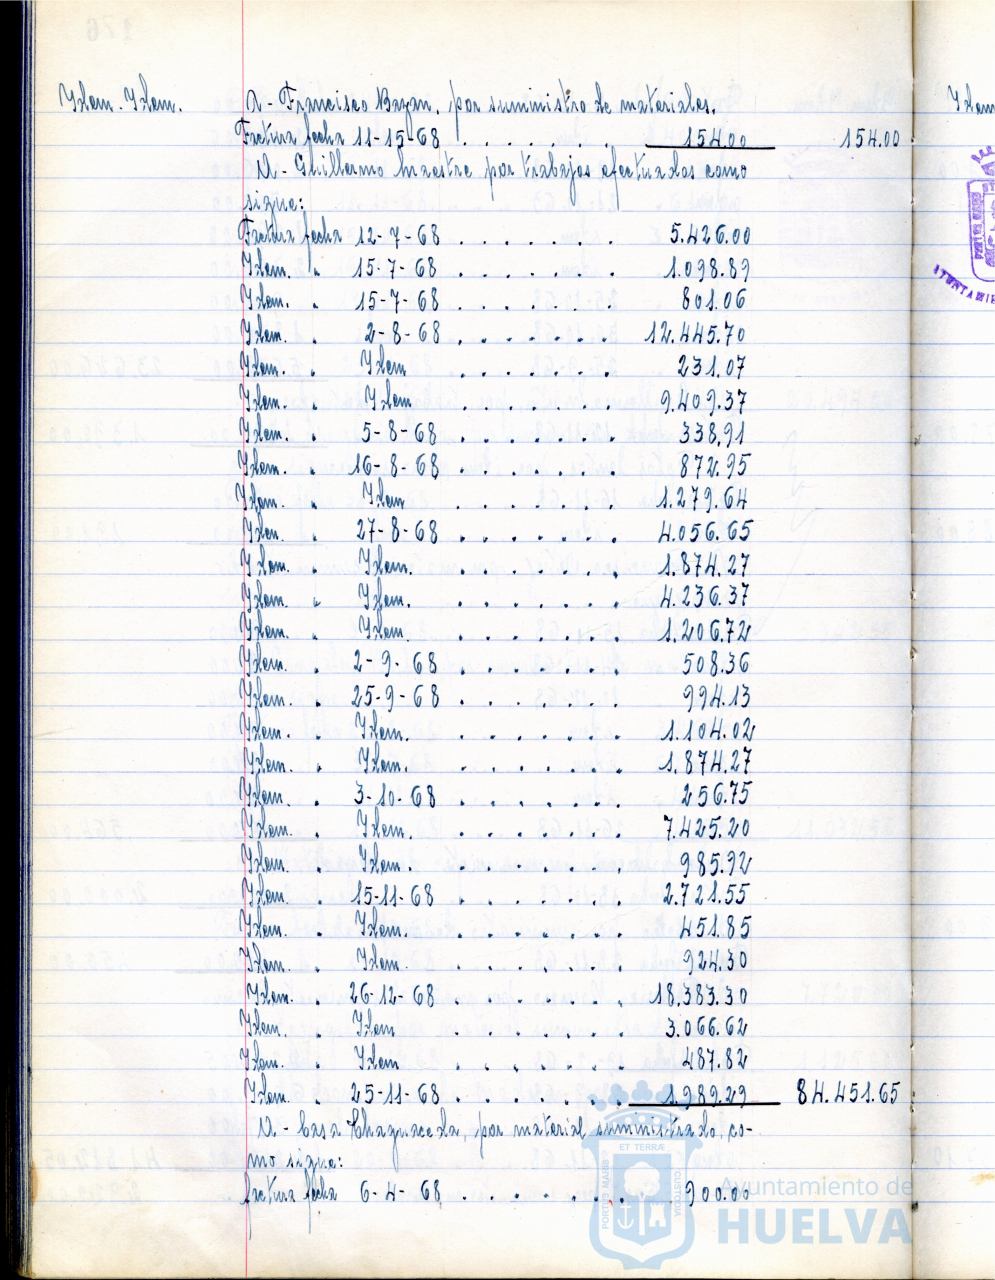 Idem. Idem. A - Francisco Bazan, por suministro de materiales.
Factura fecha 11-15-68 . . . . . . . 154.00 154.00
A - Guillermo Maestre por trabajos efectuados como
sigue:
Factura fecha 12-7-68 . . . . . . . 5.426.00
Idem. " 15-7-68 . . . . . . . 1.098.89
Idem. " 15-7-68 . . . . . . . 801.06
Idem. " 2-8-68 . . . . . . . 12.445.70
Idem. " Idem . . . . . . . 231.07
Idem. " Idem . . . . . . . 9.409.37
Idem. " 5-8-68 . . . . . . . 338,91
Idem. " 16-8-68 . . . . . . . 872.95
Idem. " Idem . . . . . . . 1.279.64
Idem. " 27-8-68 . . . . . . . 4.056.65
Idem. " Idem. . . . . . . . 1.874.27
Idem. " Idem. . . . . . . . 4.236.37
Idem. " Idem. . . . . . . . 1.206.72
Idem. " 2-9-68 . . . . . . . 508.36
Idem. " 25-9-68 . . . . . . . 994.13
Idem. " Idem. . . . . . . . 1.104.02
Idem. " Idem. . . . . . . . 1.874.27
Idem. " 3-10-68 . . . . . . . 256.75
Idem. " Idem. . . . . . . . 7.425.20
Idem. " Idem. . . . . . . . 985.92
Idem. " 15-11-68 . . . . . . . 2.721.55
Idem. " Idem. . . . . . . . 451.85
Idem. " Idem. . . . . . . . 924.30
Idem. " 26-12-68 . . . . . . . 18.383.30
Idem. " Idem . . . . . . . 3.066.62
Idem. " Idem . . . . . . . 487.82
Idem. " 25-11-68 . . . . . . . 1.989.29 84.451.65
A - Casa Chaguaceda, por material suministrado, co-
mo sigue:
factura fecha 6-4-68 . . . . . . . 900.00
Idem
PORTUS MARIS ET TERRÆ CUSTODIA
Ayuntamiento de
HUELVA